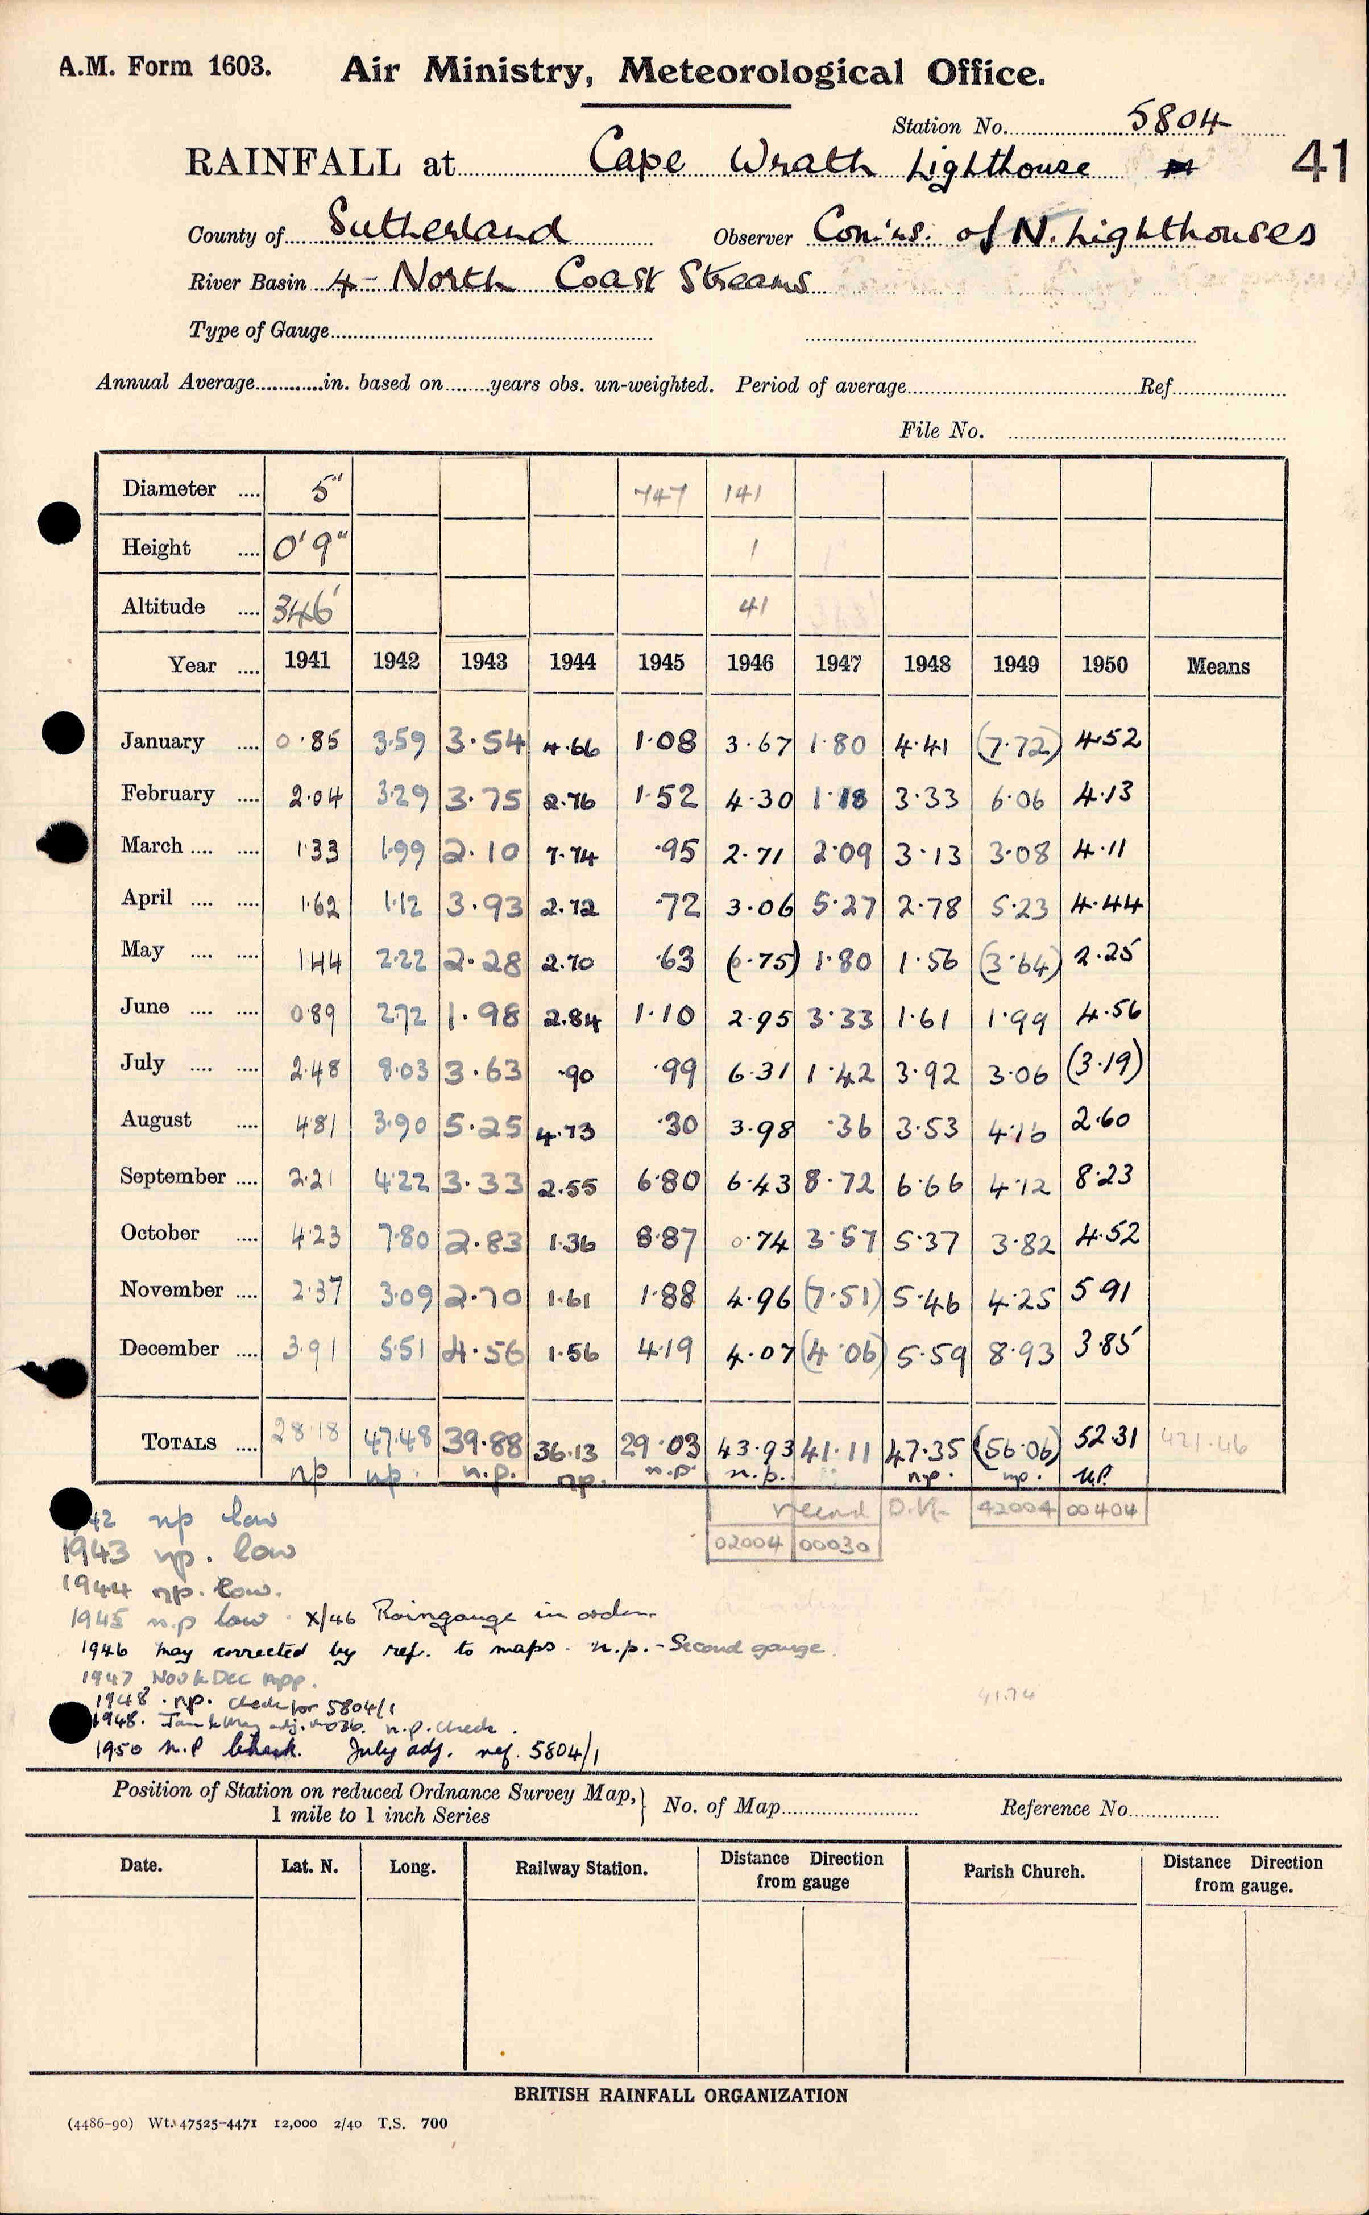 A.M. Form 1603. Air Ministry, Meteorological Office.
Station No. 5804
RAINFALL at Cape Wrath Lighthouse 41
County of Sutherland Observer Com'ns. of N. Lighthouses
River Basin 4 - North Coast Streams
Type of Gauge
Annual Average in. based on years obs. un-weighted. Period of average Ref
File No.
Diameter 5" 747 141
Height 0'9" 1
Altitude 346' 41
Year 1941 1942 1943 1944 1945 1946 1947 1948 1949 1950 Means
January 0.85 3.59 3.54 4.66 1.08 3.67 1.80 4.41 (7.72) 4.52
February 2.04 3.29 3.75 2.76 1.52 4.30 1.18 3.33 6.06 4.13
March 1.33 1.99 2.10 7.74 .95 2.71 2.09 3.13 3.08 4.11
April 1.62 1.12 3.93 2.72 .72 3.06 5.27 2.78 5.23 4.44
May 1.44 2.22 2.28 2.70 .63 (0.75) 1.80 1.56 (3.64) 2.25
June 0.89 2.72 1.98 2.84 1.10 2.95 3.33 1.61 1.99 4.56
July 2.48 8.03 3.63 .90 .99 6.31 1.42 3.92 3.06 (3.19)
August 4.81 3.90 5.25 4.73 .30 3.98 .36 3.53 4.16 2.60
September 2.21 4.22 3.33 2.55 6.80 6.43 8.72 6.66 4.12 8.23
October 4.23 7.80 2.83 1.36 8.87 0.74 3.57 5.37 3.82 4.52
November 2.37 3.09 2.70 1.61 1.88 4.96 (7.51) 5.46 4.25 5.91
December 3.91 5.51 4.56 1.56 4.19 4.07 (4.06) 5.59 8.93 3.85
TOTALS 28.18 47.48 39.88 36.13 29.03 43.93 41.11 47.35 (56.06) 52.31 421.46
np np. n.p. np. n.p n.p. np. np. n.p.
42004 00404
02004 00030
42 np low
1943 np. low
1944 np. low.
1945 n.p low. X/46 Raingauge in order.
1946 May corrected by ref. to maps. n.p. - Second gauge.
1947 Nov & Dec App.
1948 . np. check for 5804/1
1948. Jan & May adj. n.p. check.
1950 n.p check. July adj. ref. 5804/1
41.74
Position of Station on reduced Ordnance Survey Map, 1 mile to 1 inch Series } No. of Map Reference No.
Date. Lat. N. Long. Railway Station. Distance Direction from gauge Parish Church. Distance Direction from gauge.
BRITISH RAINFALL ORGANIZATION
(4486-90) Wt. 47525-4471 12,000 2/40 T.S. 700